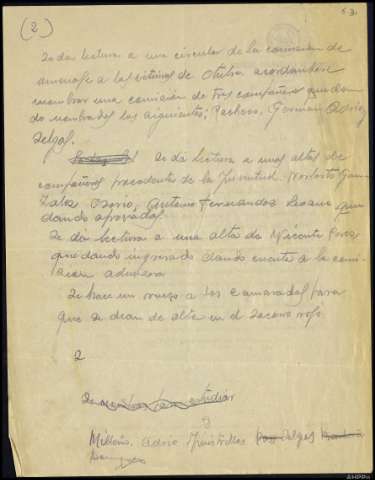 (2)
5.3.
Se da lectura a una circular de la comision de
omenage a las victimas de acordandose
nombrar una comisión de tres compañeros quedan
do nombrados los siguientes; Pacheco, German Osorio,
Selgas.
Se da lectura a unas altas de
compañeros procedentes de la Juventud. Norberto Gon
zalez Osorio, Gustavo Fernandez Lozano quen
dando aprovadas.
Se da lectura a una alta de Vicente Perez
quedando ingresado dando cuenta a la comi
sion
Se hace un ruego a los camaradas para
que se dean de alta en el socorro rojo.
2
estudiar
y
Selgas
AHPPo